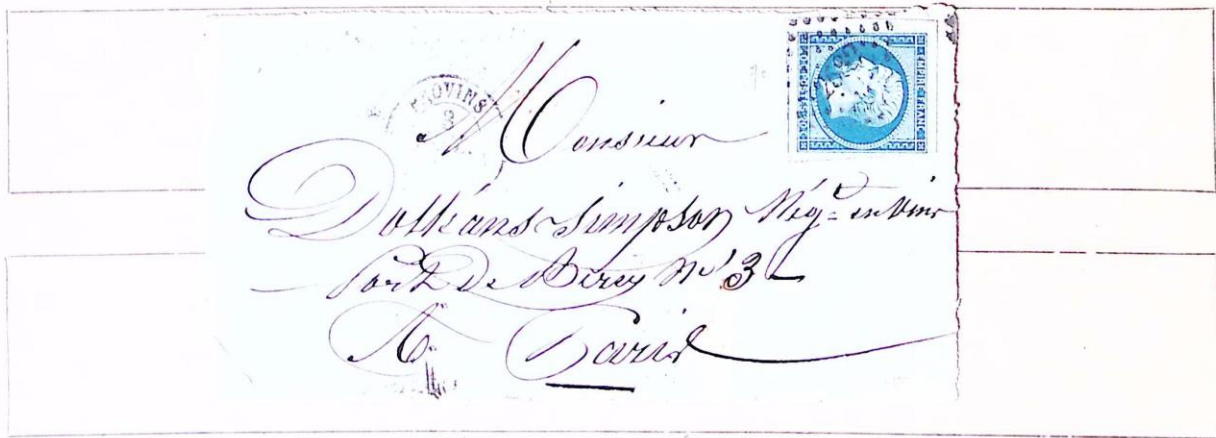 PROVINS
Monsieur
Dolléans-Simpson Nég.t en vins
Port De Bercy No 3
A Paris